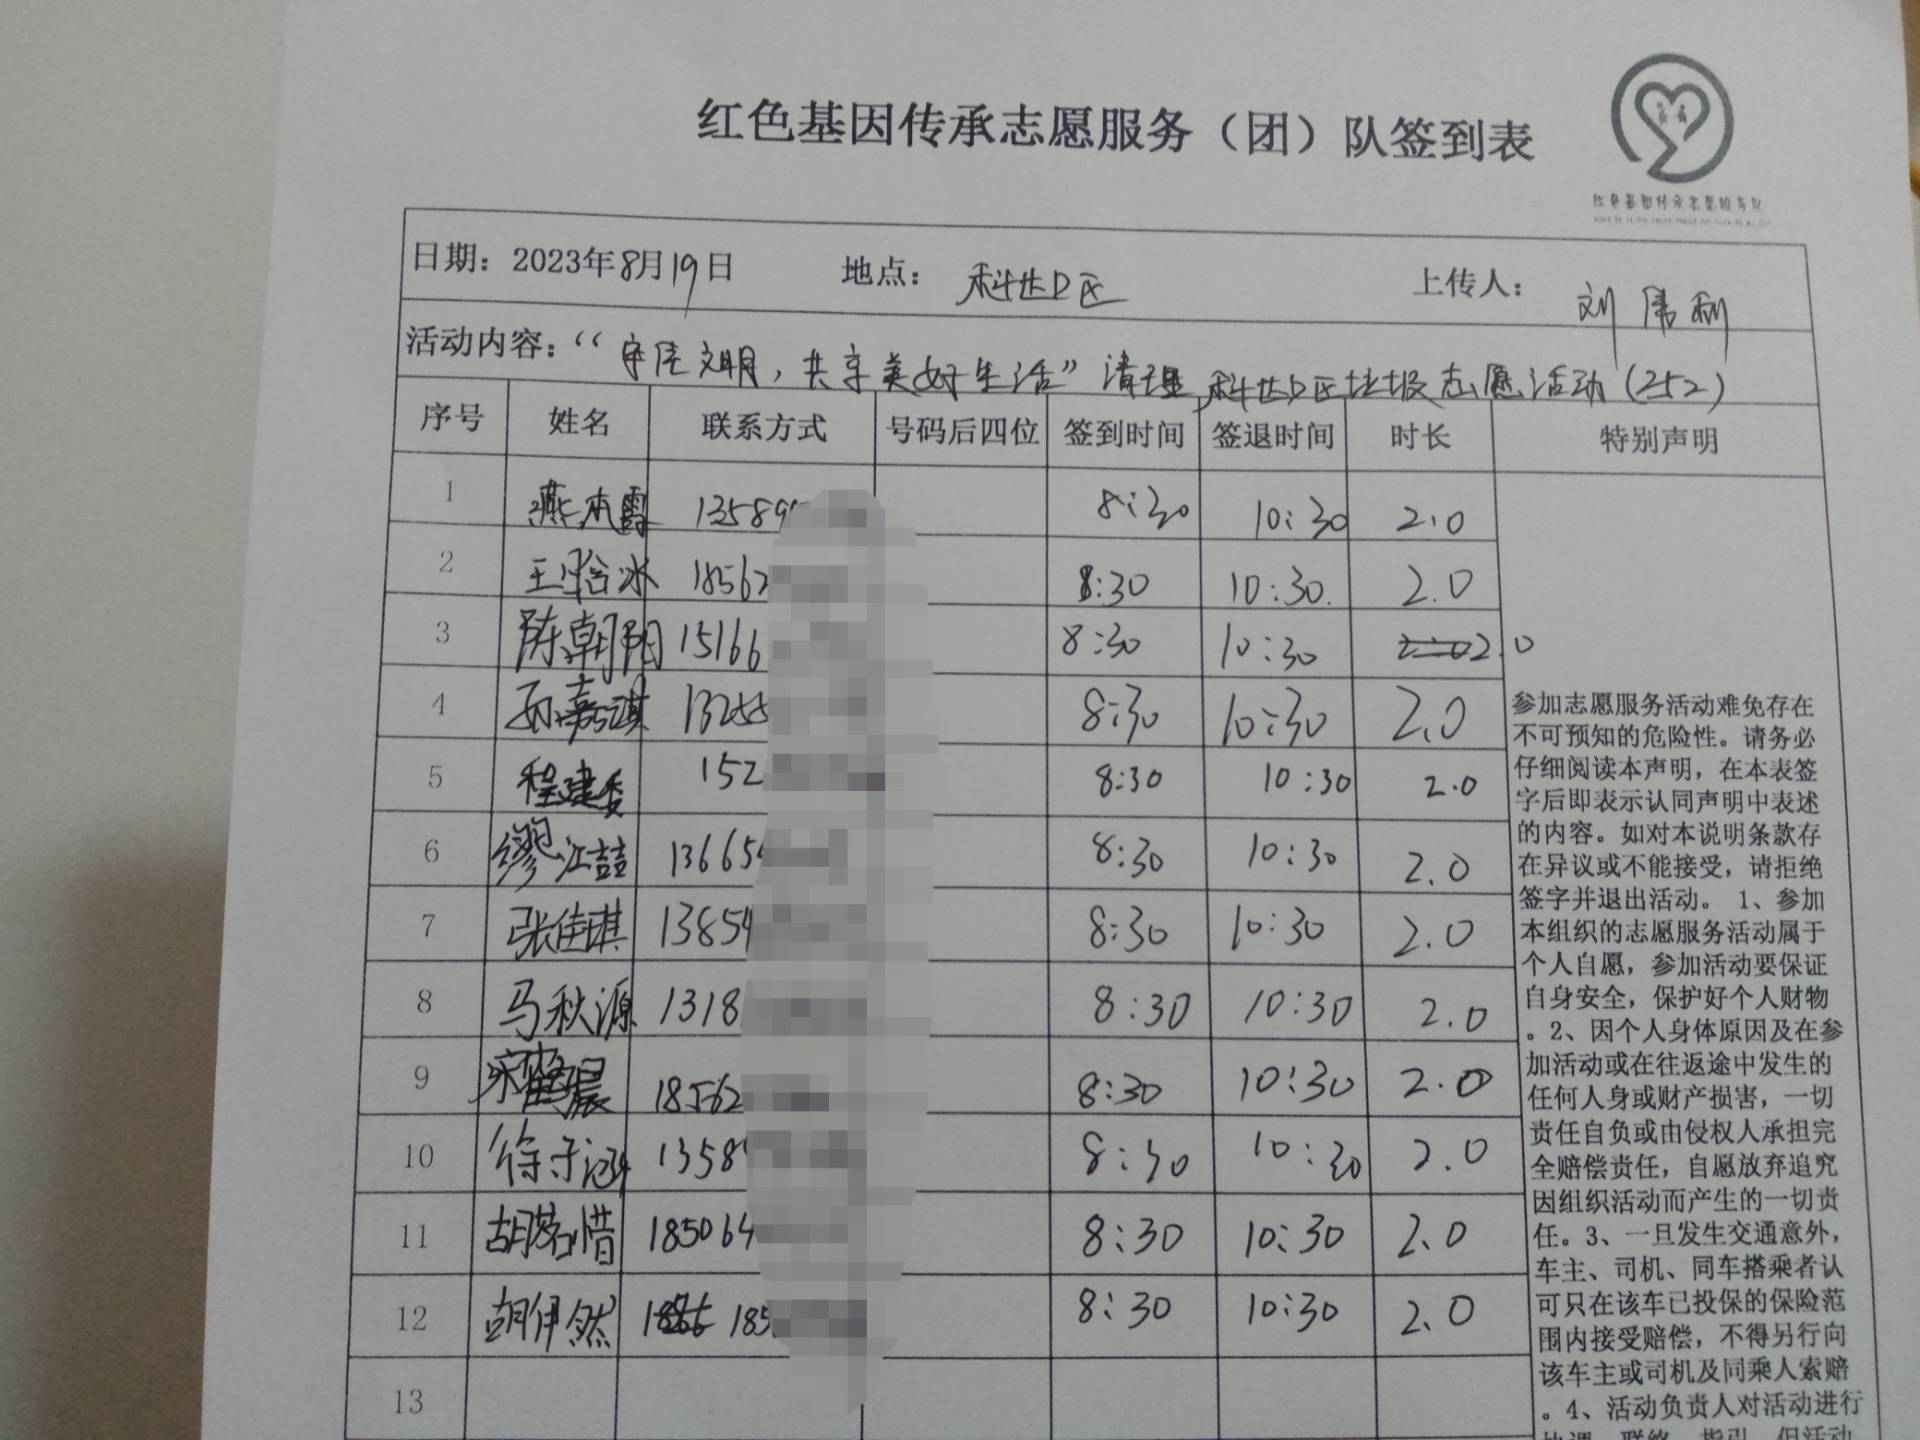 红色基因传承志愿服务（团）队签到表
红色基因传承志愿服务队
日期：2023年8月19日 地点：科达D区 上传人：刘伟利
活动内容：“守住文明，共享美好生活”清理科达D区垃圾志愿活动（252）
序号 姓名 联系方式 号码后四位 签到时间 签退时间 时长 特别声明
1 燕本霞 13589 8:30 10:30 2.0
2 王晗冰 18562 8:30 10:30. 2.0
3 陈朝阳 15166 8:30 10:30 2.0
4 孙嘉淇 13255 8:30 10:30 2.0
5 程建委 152 8:30 10:30 2.0
6 缪江喆 13665 8:30 10:30 2.0
7 张佳琪 13854 8:30 10:30 2.0
8 马秋源 1318 8:30 10:30 2.0
9 宋 晨 18562 8:30 10:30 2.0
10 徐子涵 1358 8:30 10:30 2.0
11 胡若惜 185064 8:30 10:30 2.0
12 胡伊然 185 8:30 10:30 2.0
13
参加志愿服务活动难免存在
不可预知的危险性。请务必
仔细阅读本声明，在本表签
字后即表示认同声明中表述
的内容。如对本说明条款存
在异议或不能接受，请拒绝
签字并退出活动。 1、参加
本组织的志愿服务活动属于
个人自愿，参加活动要保证
自身安全，保护好个人财物
。2、因个人身体原因及在参
加活动或在往返途中发生的
任何人身或财产损害，一切
责任自负或由侵权人承担完
全赔偿责任，自愿放弃追究
因组织活动而产生的一切责
任。3、一旦发生交通意外，
车主、司机、同车搭乘者认
可只在该车已投保的保险范
围内接受赔偿，不得另行向
该车主或司机及同乘人索赔
。4、活动负责人对活动进行
协调、联络、指引，但活动